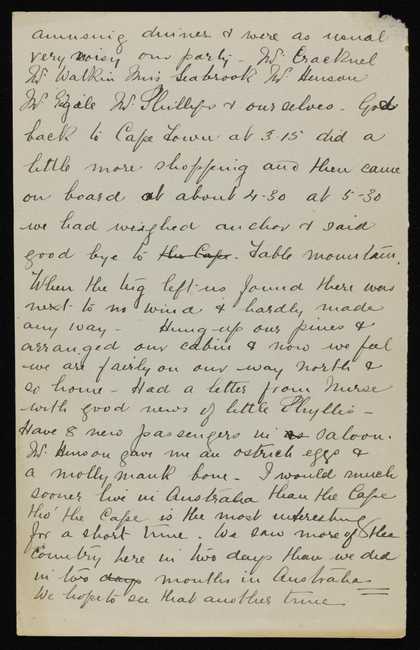 amusing dinner & were as usual
very noisy our party - Mr. Cracknel
Mr Watkin Miss Seabrook Mr Henson
Mr Mr Phillips & ourselves - Got
back to Cape Town at 3-15 did a
little more shopping and then came
on board at about 4-30 at 5-30
we had weighed anchor & said
good bye to the Cape. Table mountain.
When the tug left us found there was
next to no wind & hardly made
any way - Hung up our pines &
arranged our cabin & now we feel
we are fairly on our way north &
so home - Had a letter from Nurse
with good news of little Phyllis -
Have 8 new passengers in saloon.
Mr. Henson gave me an ostrich eggs &
a molly mauk bone - I would much
sooner live in Australia than the Cape
tho' the Cape is the most interesting
for a short time. We saw more of the
Country here in two days than we did
in two days months in Australia
We hope to see that another time